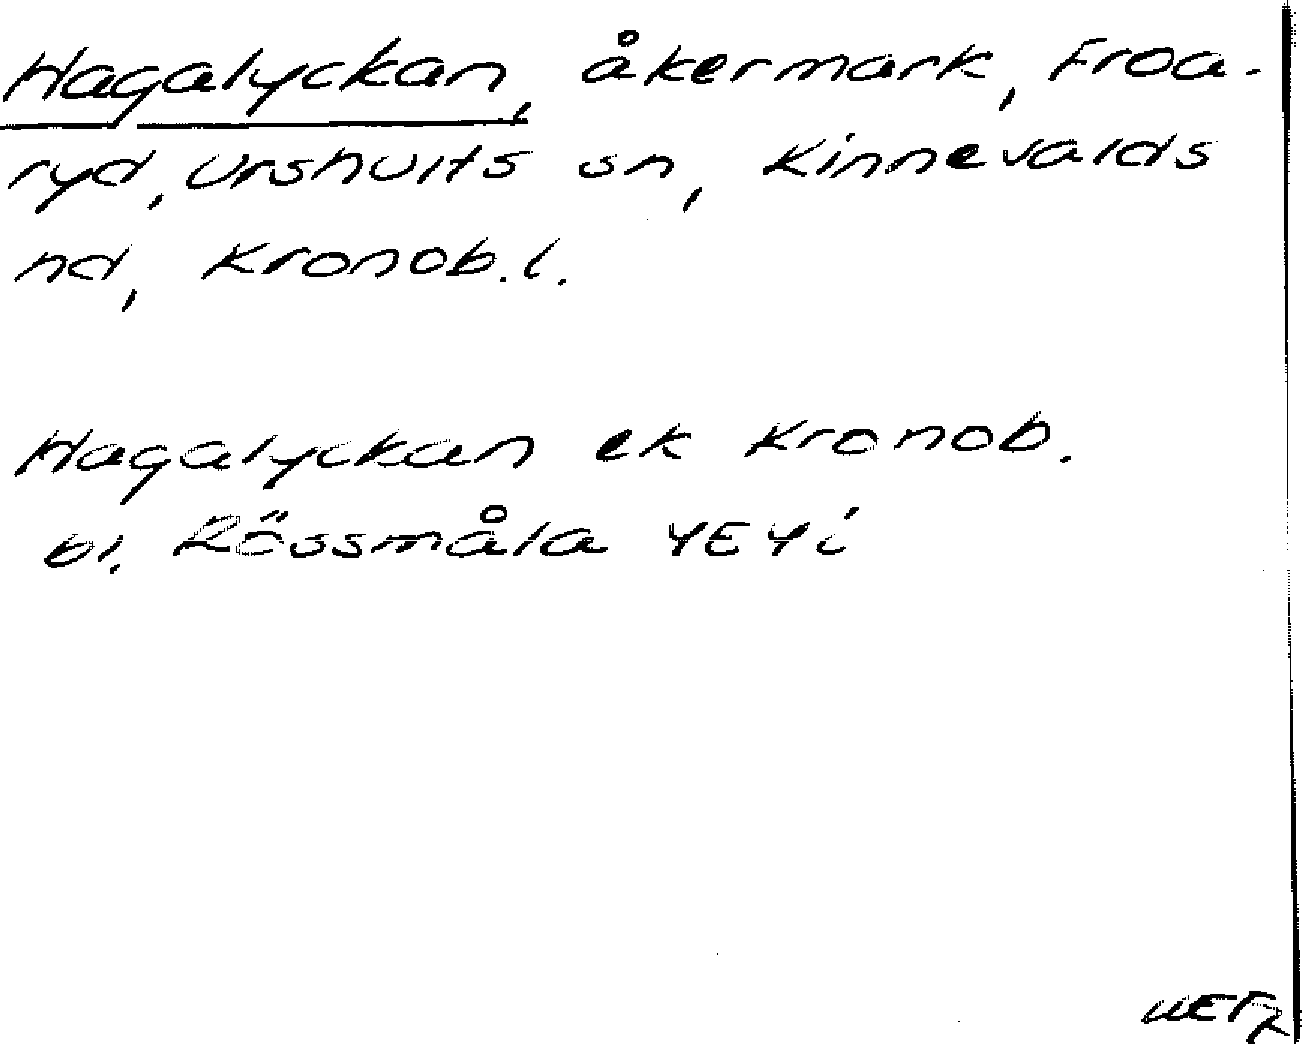 Hagalyckan, åkermark, Froa-
ryd, Urshults sn, Kinnevalds
nd, Kronob. l.
Hagalyckan ek Kronob.
bl. Rössmåla 4E4i